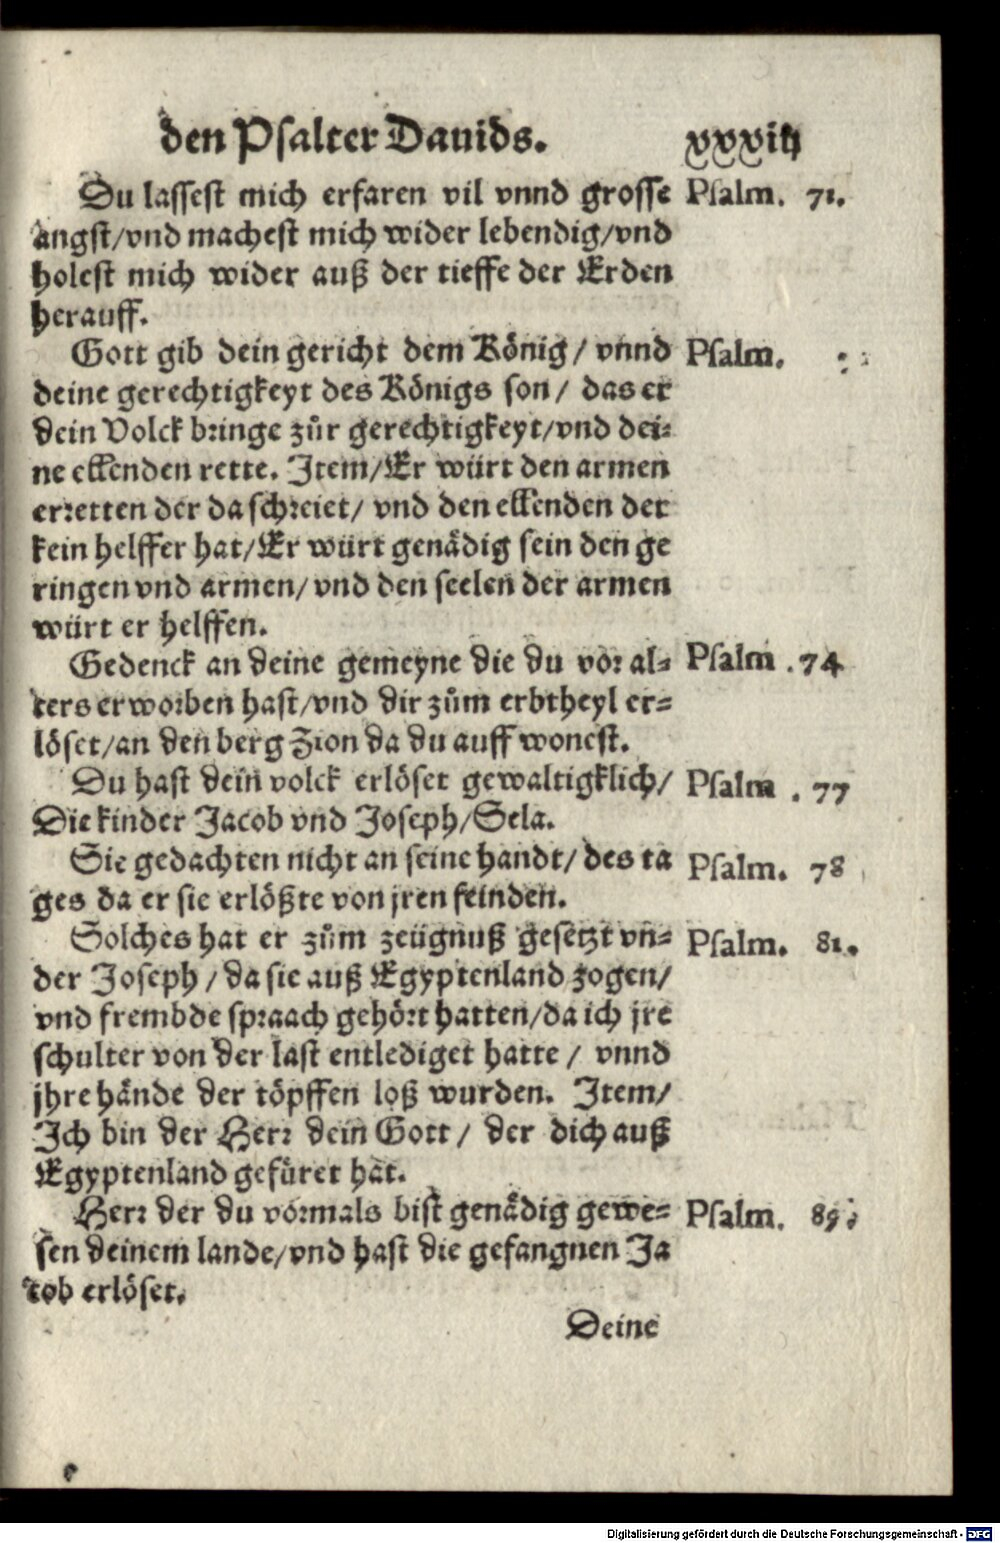 den Psalter Dauids. xxxiij
Du lassest mich erfaren vil vnnd grosse Psalm. 71.
angst/vnd machest mich wider lebendig/vnd
holest mich wider auß der tieffe der Erden
herauff.
Gott gib dein gericht dem König/ vnnd Psalm.
deine gerechtigkeyt des Königs son/ das er
dein Volck bringe zůr gerechtigkeyt/vnd dei⸗
ne ellenden rette. Item/Er würt den armen
erretten der da schreiet/ vnd den ellenden der
kein helffer hat/Er würt genädig sein den ge
ringen vnd armen/ vnd den seelen der armen
würt er helffen.
Gedenck an deine gemeyne die du vor al⸗ Psalm .74
ters erworben hast/vnd dir zům erbtheyl er⸗
löset/an den berg Zion da du auff wonest.
Du hast dein volck erlöset gewaltigklich/ Psalm . 77
Die kinder Jacob vnd Joseph/Sela.
Sie gedachten nicht an seine handt/ des ta Psalm. 78
ges da er sie erlößte von jren feinden.
Solches hat er zům zeügnuß gesetzt vn⸗ Psalm. 81.
der Joseph/ da sie auß Egyptenland zogen/
vnd frembde spraach gehört hatten/da ich jre
schulter von der last entlediget hatte/ vnnd
jhre hände der töpffen loß wurden. Item/
Ich bin der Herr dein Gott/ der dich auß
Egyptenland gefüret hat.
Herr der du vormals bist genädig gewe⸗ Psalm.
sen deinem lande/vnd hast die gefangnen Ja
cob erlöset.
Deine
Digitalisierung gefördert durch die Deutsche Forschungsgemeinschaft - DFG